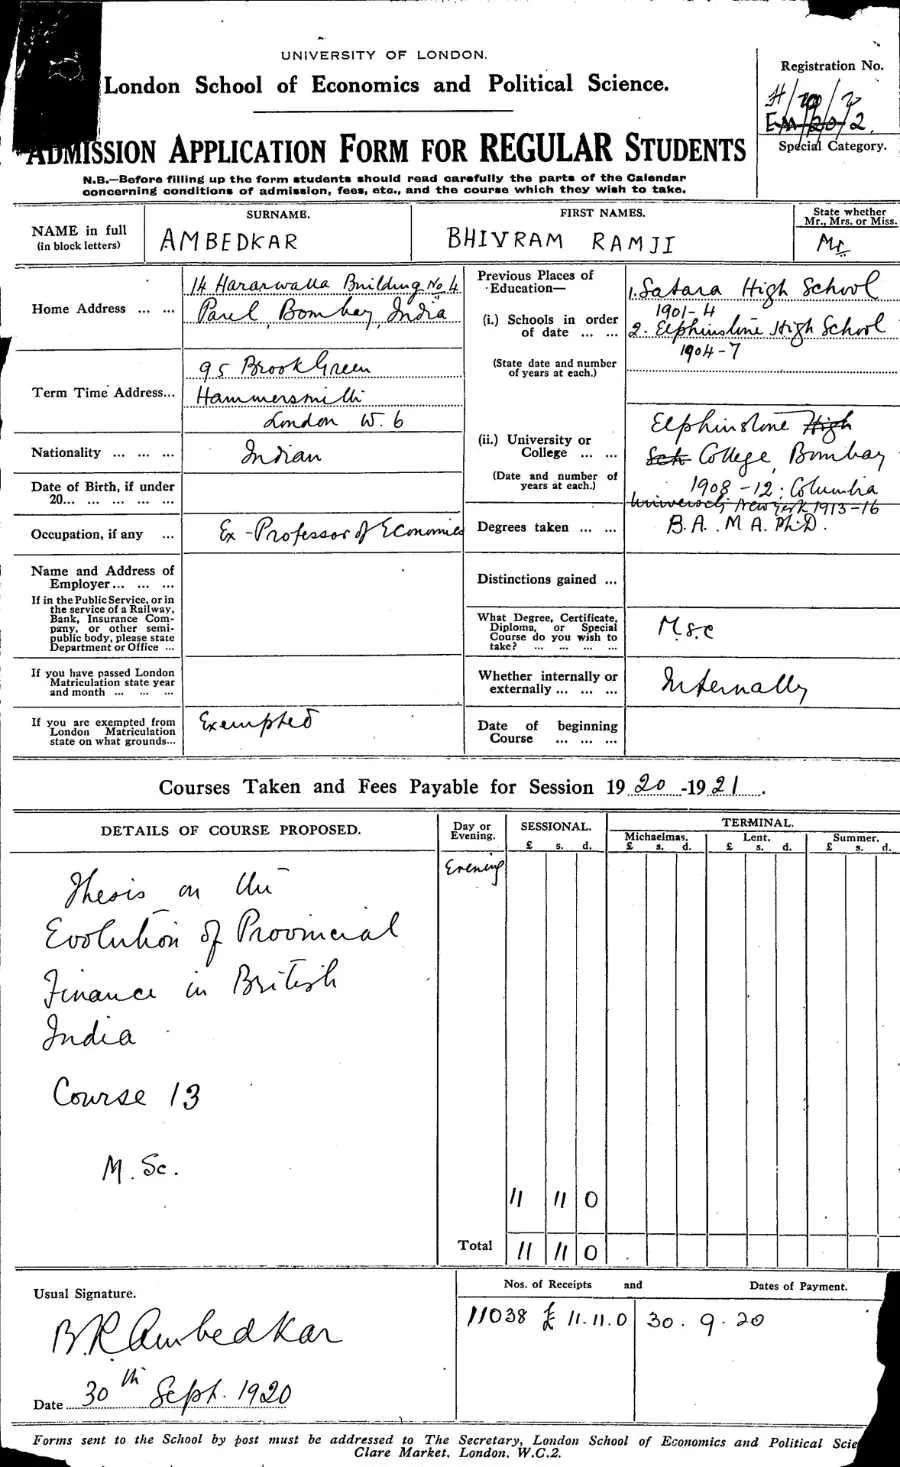 UNIVERSITY OF LONDON.
London School of Economics and Political Science.
ADMISSION APPLICATION FORM FOR REGULAR STUDENTS
N.B.—Before filling up the form students should read carefully the parts of the Calendar
concerning conditions of admission, fees, etc., and the course which they wish to take.
Registration No.
Special Category.
NAME in full
(in block letters)
SURNAME.
AMBEDKAR
FIRST NAMES.
BHIVRAM RAMJI
State whether
Mr., Mrs. or Miss.
Mr
Home Address ... ...
14 Hararwalla Building No. 4
Parel, Bombay, India
Term Time Address...
95 Brook Green
Hammersmith
London W. 6
Nationality ... ... ...
Indian
Date of Birth, if under
20... ... ... ... ...
Occupation, if any ...
Ex-Professor of Economics
Name and Address of
Employer... ... ...
If in the Public Service, or in
the service of a Railway,
Bank, Insurance Com-
pany, or other semi-
public body, please state
Department or Office ...
If you have passed London
Matriculation state year
and month ... ... ...
If you are exempted from
London Matriculation
state on what grounds...
Exempted
Previous Places of
Education—
(i.) Schools in order
of date ... ...
(State date and number
of years at each.)
1. Satara High School
1901-4
2. Elphinstone High School
1904-7
(ii.) University or
College ... ...
(Date and number of
years at each.)
Elphinstone High
Sch College, Bombay
1908-12; Columbia
University New York 1913-16
Degrees taken ... ...
B.A. M A. Ph.D.
Distinctions gained ...
What Degree, Certificate,
Diploma, or Special
Course do you wish to
take? ... ... ... ...
M.Sc
Whether internally or
externally ... ... ...
Internally
Date of beginning
Course ... ... ...
Courses Taken and Fees Payable for Session 1920-1921.
DETAILS OF COURSE PROPOSED.
Day or
Evening.
SESSIONAL.
£ s. d.
TERMINAL.
Michaelmas. Lent. Summer.
£ s. d. £ s. d. £ s. d.
Evening
Thesis on the
Evolution of Provincial
Finance in British
India
Course 13
M.Sc.
11 11 0
Total 11 11 0
Usual Signature.
B.R. Ambedkar
Date 30th Sept. 1920
Nos. of Receipts and Dates of Payment.
11038 £ 11.11.0 30.9.20
Forms sent to the School by post must be addressed to The Secretary, London School of Economics and Political
Clare Market, London, W.C.2.